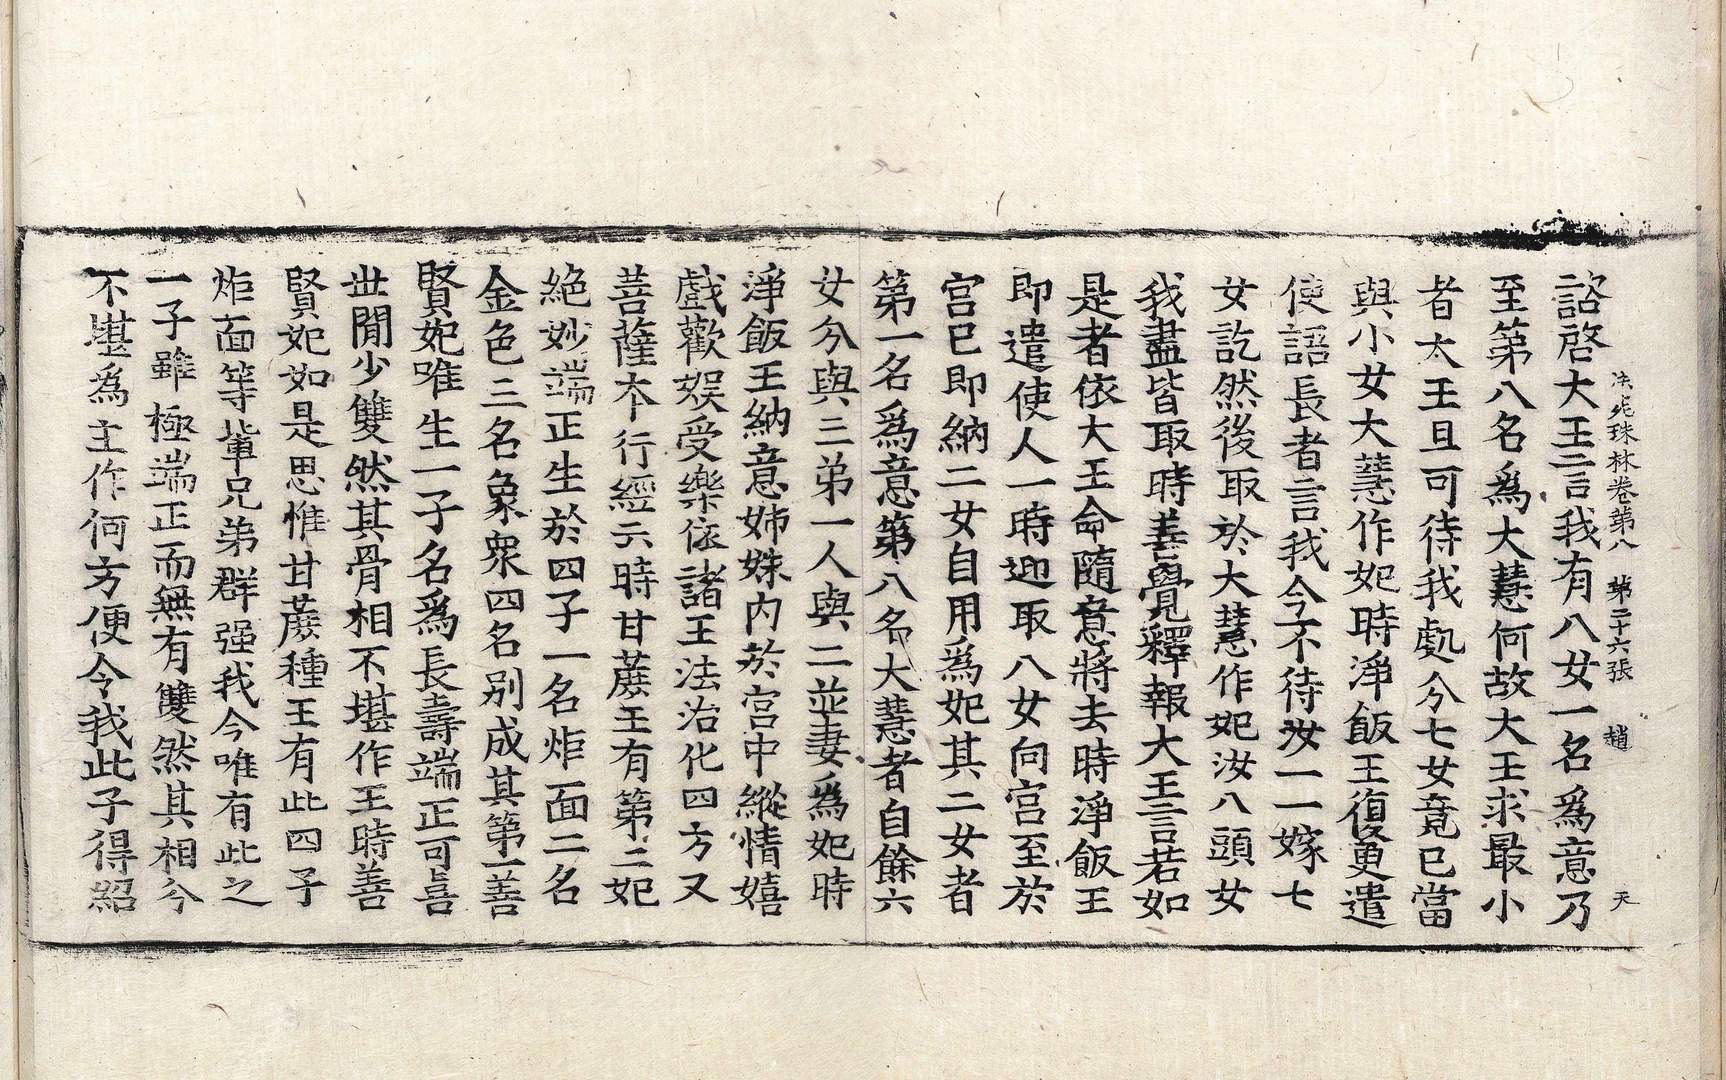 法苑珠林卷第八　第二十六張　趙　天
諮啓大王言我有八女一名爲意乃
至第八名爲大慧何故大王求最小
者大王且可待我處分七女竟已當
與小女大慧作妃時淨飯王復更遣
使語長者言我今不待汝一一嫁七
女訖然後取於大慧作妃汝八頭女
我盡皆取時善覺釋報大王言若如
是者依大王命隨意將去時淨飯王
即遣使人一時迎取八女向宫至於
宫已即納二女自用爲妃其二女者
第一名爲意第八名大慧者自餘六
女分與三弟一人與二並妻爲妃時
淨飯王納意姊姝内於宫中縱情嬉
戲歡娱受樂依諸王法治化四方又
菩薩本行經云時甘蔗王有第二妃
絶妙端正生於四子一名炬面二名
金色三名象衆四名别成其第一善
賢妃唯生一子名爲長壽端正可喜
世閒少雙然其骨相不堪作王時善
賢妃如是思惟甘蔗種王有此四子
炬面等軰兄弟群强我今唯有此之
一子雖極端正而無有雙然其相今
不堪爲主作何方便令我此子得紹